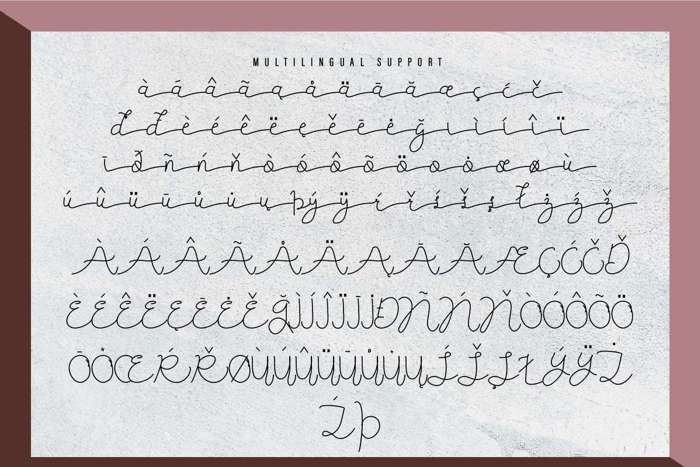 MULTILINGUAL SUPPORT
à á â ã ą å ä ā ă æ ç ć č
ď đ è é ê ë ę ě ē ė ğ ı ì í î ï
ī ð ñ ń ň ò ó ô õ ö ō ȯ œ ø ù
ú û ü ū ů u̇ ų þ ý ÿ ŕ ř ś š ş ł ż ź ž
À Á Â Ã Å Ä Ą Ā Ă Æ Ç Ć Č Ď
È É Ê Ë Ę Ē Ė Ě Ğ Ì Í Î Ï Ī Į İ Đ Ñ Ń Ň Ò Ó Ô Õ Ö
Ō Ȯ Œ Ŕ Ř Ø Ù Ú Û Ü Ū Ů U̇ Ų Ś Š Ş Ł Ý Ÿ Ż
Ź Þ